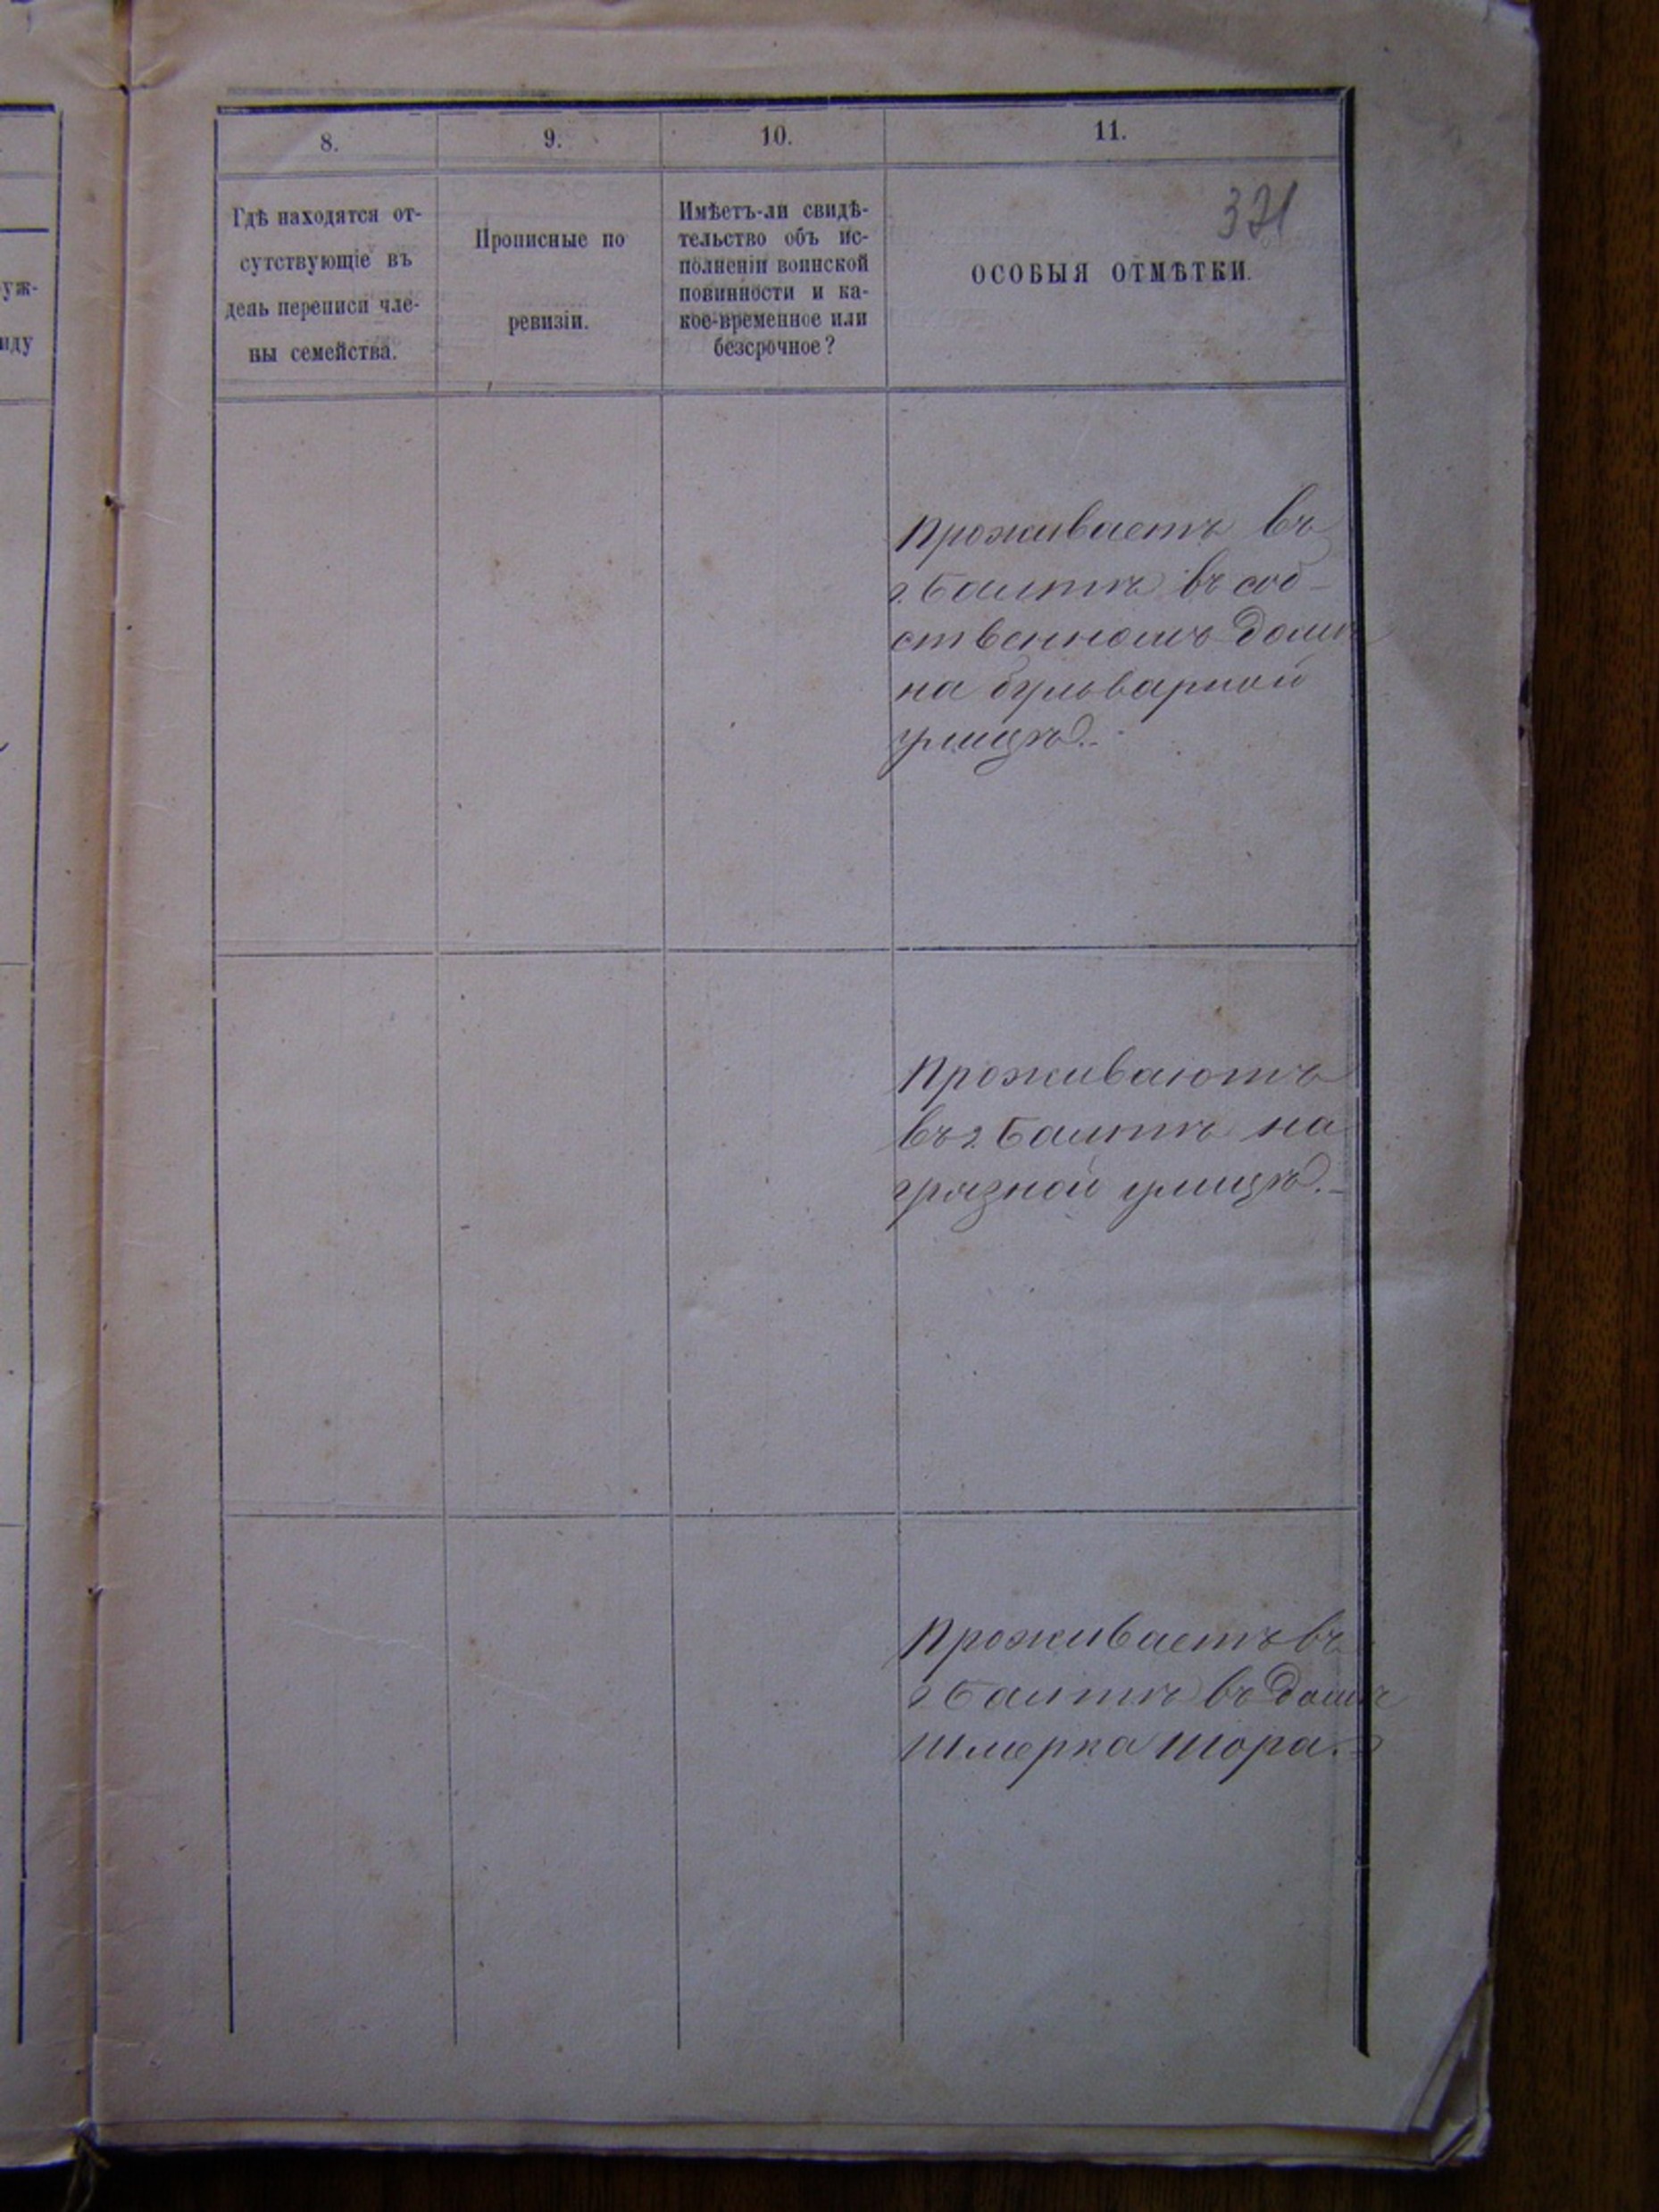 уж-
иду
8.
9.
10.
11.
Гдѣ находятся от-
сутствующіе въ
день переписи чле-
ны семейства.
Прописные по
ревизіи.
Имѣетъ-ли свидѣ-
тельство объ ис-
полненіи воинской
повинности и ка-
кое-временное или
безсрочное?
321
ОСОБЫЯ ОТМѢТКИ.
Проживаетъ въ
г. Балтѣ въ соб-
ственномъ домѣ
на бульварной
улицѣ.-
Проживаютъ
въ г. Балтѣ на
грязной улицѣ.-
Проживаетъ въ
г. Балтѣ въ домѣ
Шмерка Шора.-